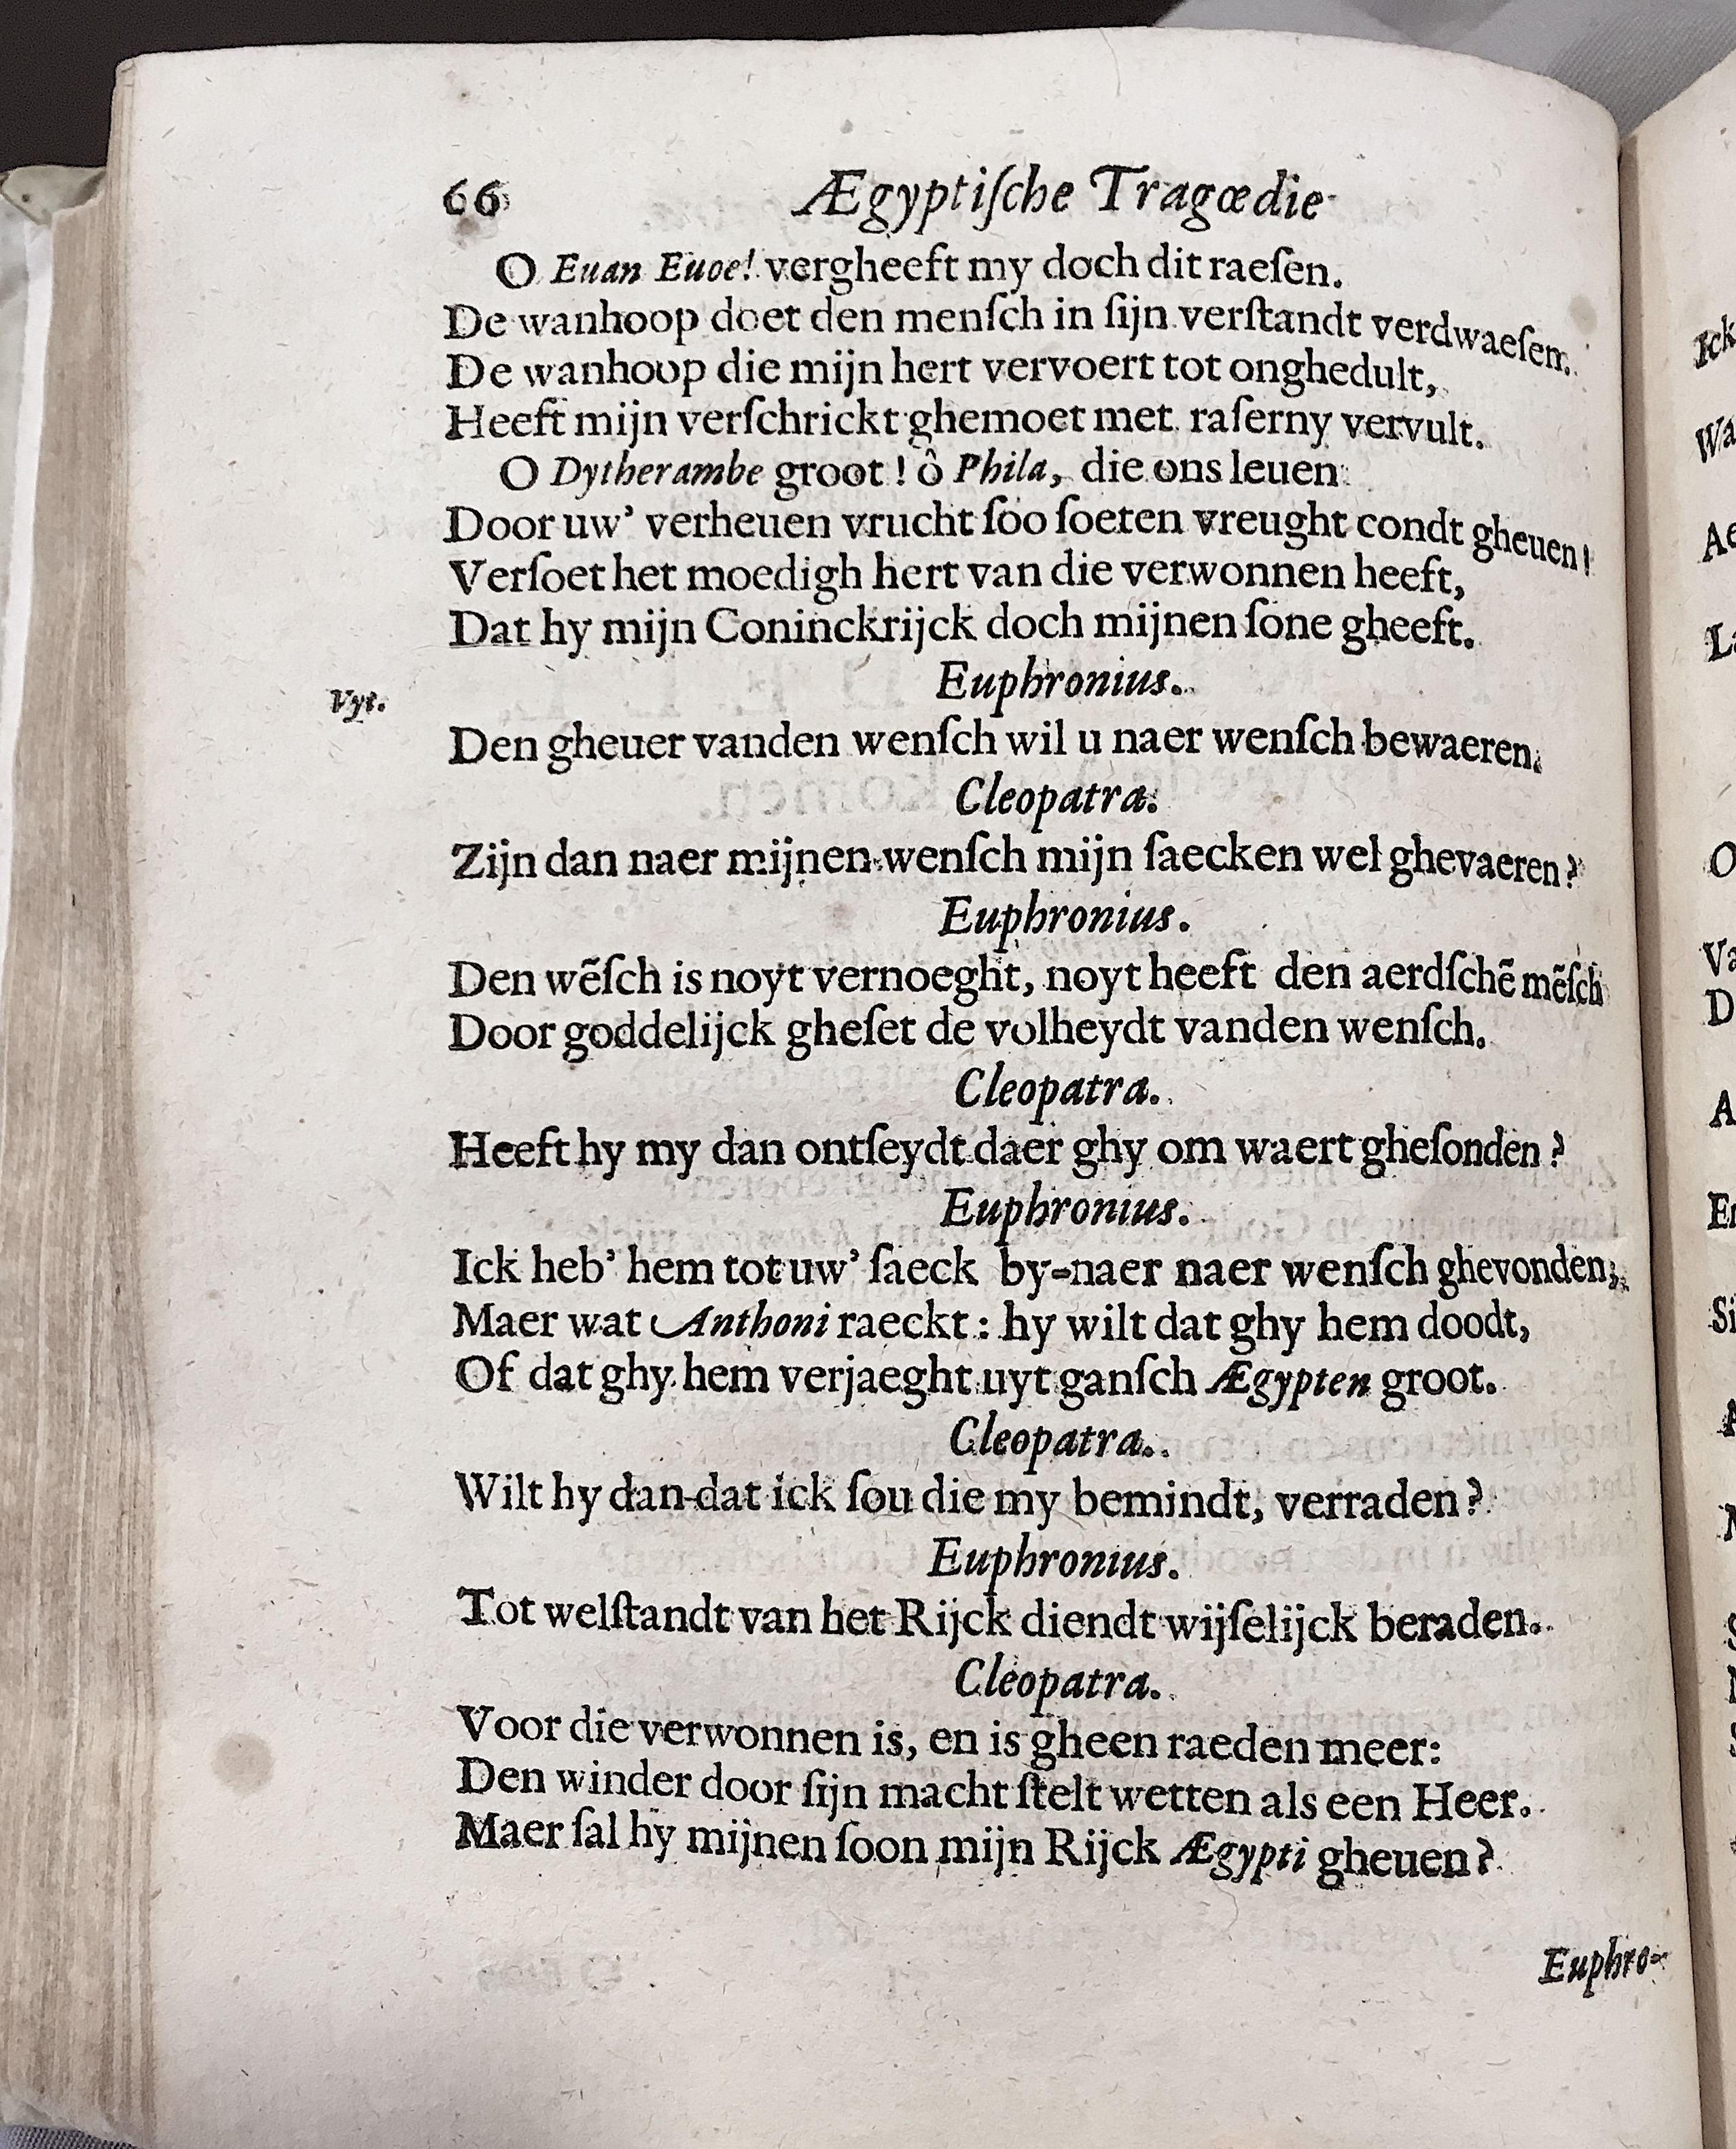 66 Ægyptiſche Tragœdie
O Euan Euoe! vergheeft my doch dit raeſen.
De wanhoop doet den menſch in ſijn verſtandt verdwaeſen.
De wanhoop die mijn hert vervoert tot onghedult,
Heeft mijn verſchrickt ghemoet met raſerny vervult.
O Dytherambe groot! ô Phila, die ons leuen
Door uw’ verheuen vrucht ſoo ſoeten vreught condt gheuen!
Verſoet het moedigh hert van die verwonnen heeft,
Dat hy mijn Coninckrijck doch mijnen ſone gheeft.
Euphronius.
Vyt.
Den gheuer vanden wenſch wil u naer wenſch bewaeren.
Cleopatra.
Zijn dan naer mijnen wenſch mijn ſaecken wel ghevaeren?
Euphronius.
Den wẽſch is noyt vernoeght, noyt heeft den aerdſchẽ mẽſch
Door goddelijck gheſet de volheydt vanden wenſch.
Cleopatra.
Heeft hy my dan ontſeydt daer ghy om waert gheſonden?
Euphronius.
Ick heb’ hem tot uw’ ſaeck by-naer naer wenſch ghevonden;
Maer wat Anthoni raeckt: hy wilt dat ghy hem doodt,
Of dat ghy hem verjaeght uyt ganſch Ægypten groot.
Cleopatra.
Wilt hy dan dat ick ſou die my bemindt, verraden?
Euphronius.
Tot welſtandt van het Rijck diendt wijſelijck beraden.
Cleopatra.
Voor die verwonnen is, en is gheen raeden meer:
Den winder door ſijn macht ſtelt wetten als een Heer.
Maer ſal hy mijnen ſoon mijn Rijck Ægypti gheuen?
Euphro-